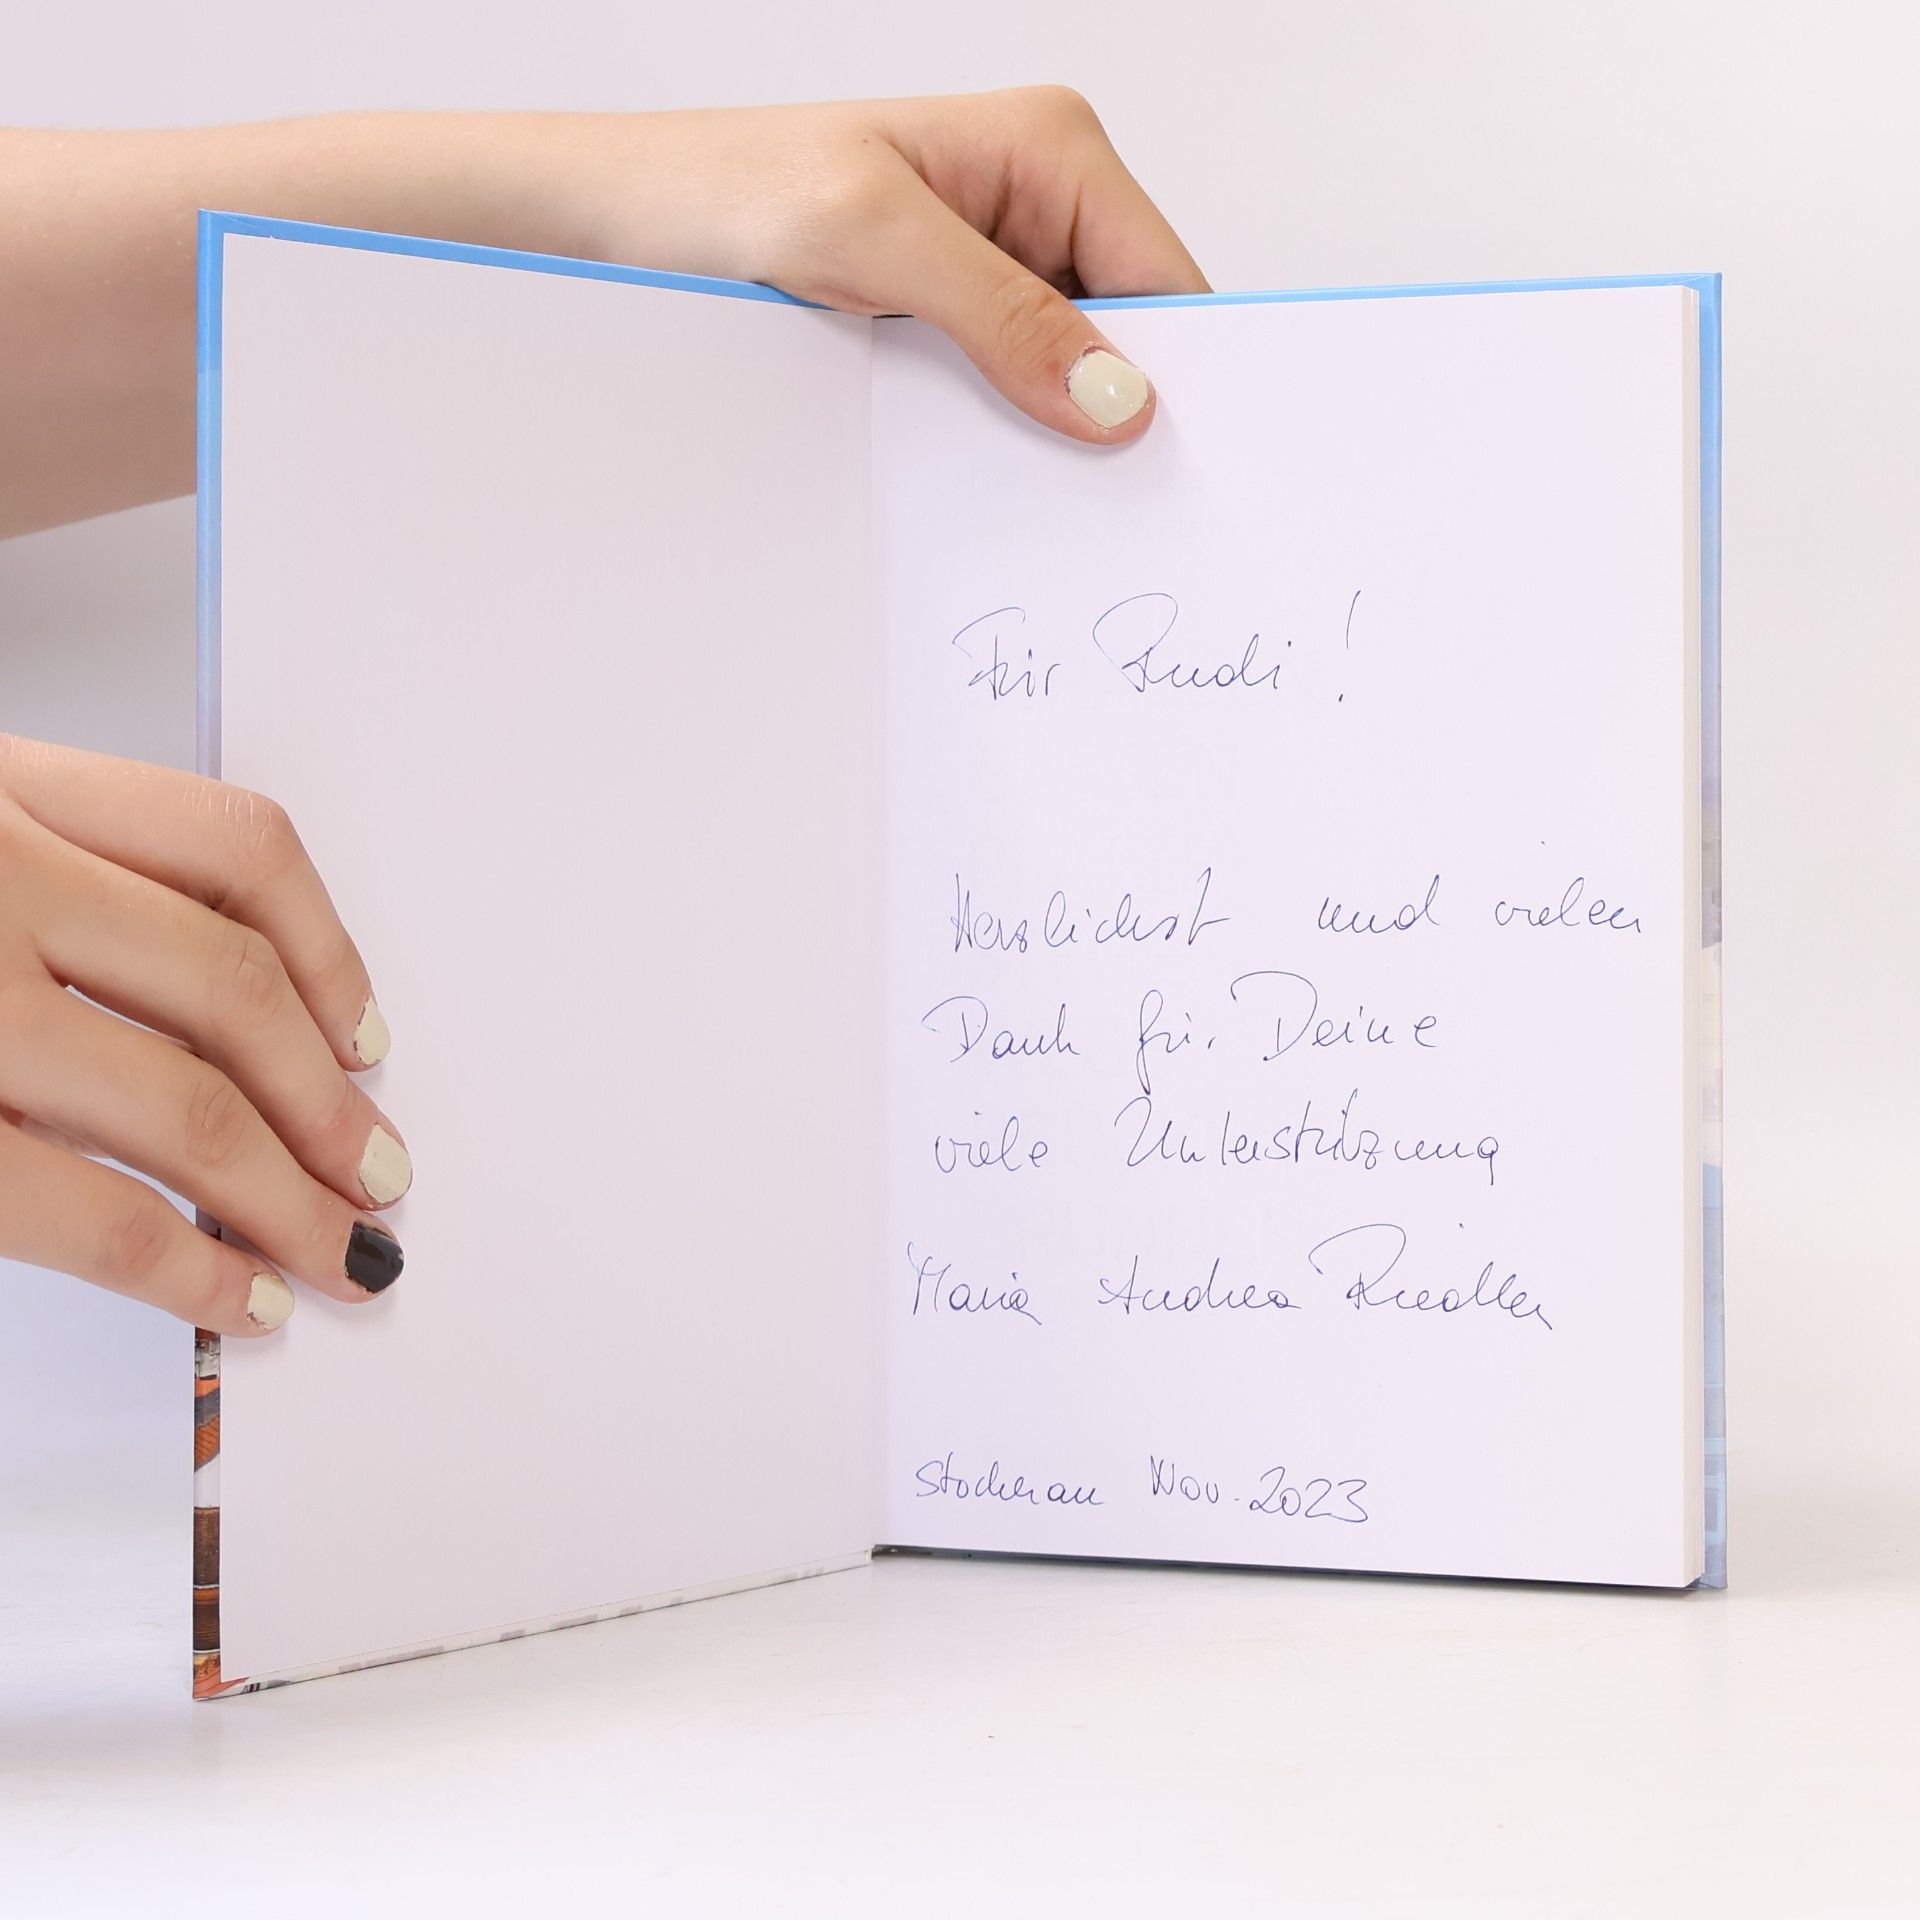 Für Rudi !
Herzlichst und vielen
Dank für Deine
viele Unterstützung
Maria Andrea Riedler
Stockerau Nov. 2023